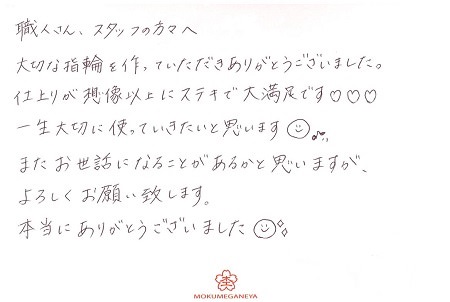 職人さん、スタッフの方々へ
大切な指輪を作っていただきありがとうございました。
仕上りが想像以上にステキで大満足です♡♡♡
一生大切に使っていきたいと思います
またお世話になることがあるかと思いますが、
よろしくお願い致します。
本当にありがとうございました
MOKUMEGANEYA